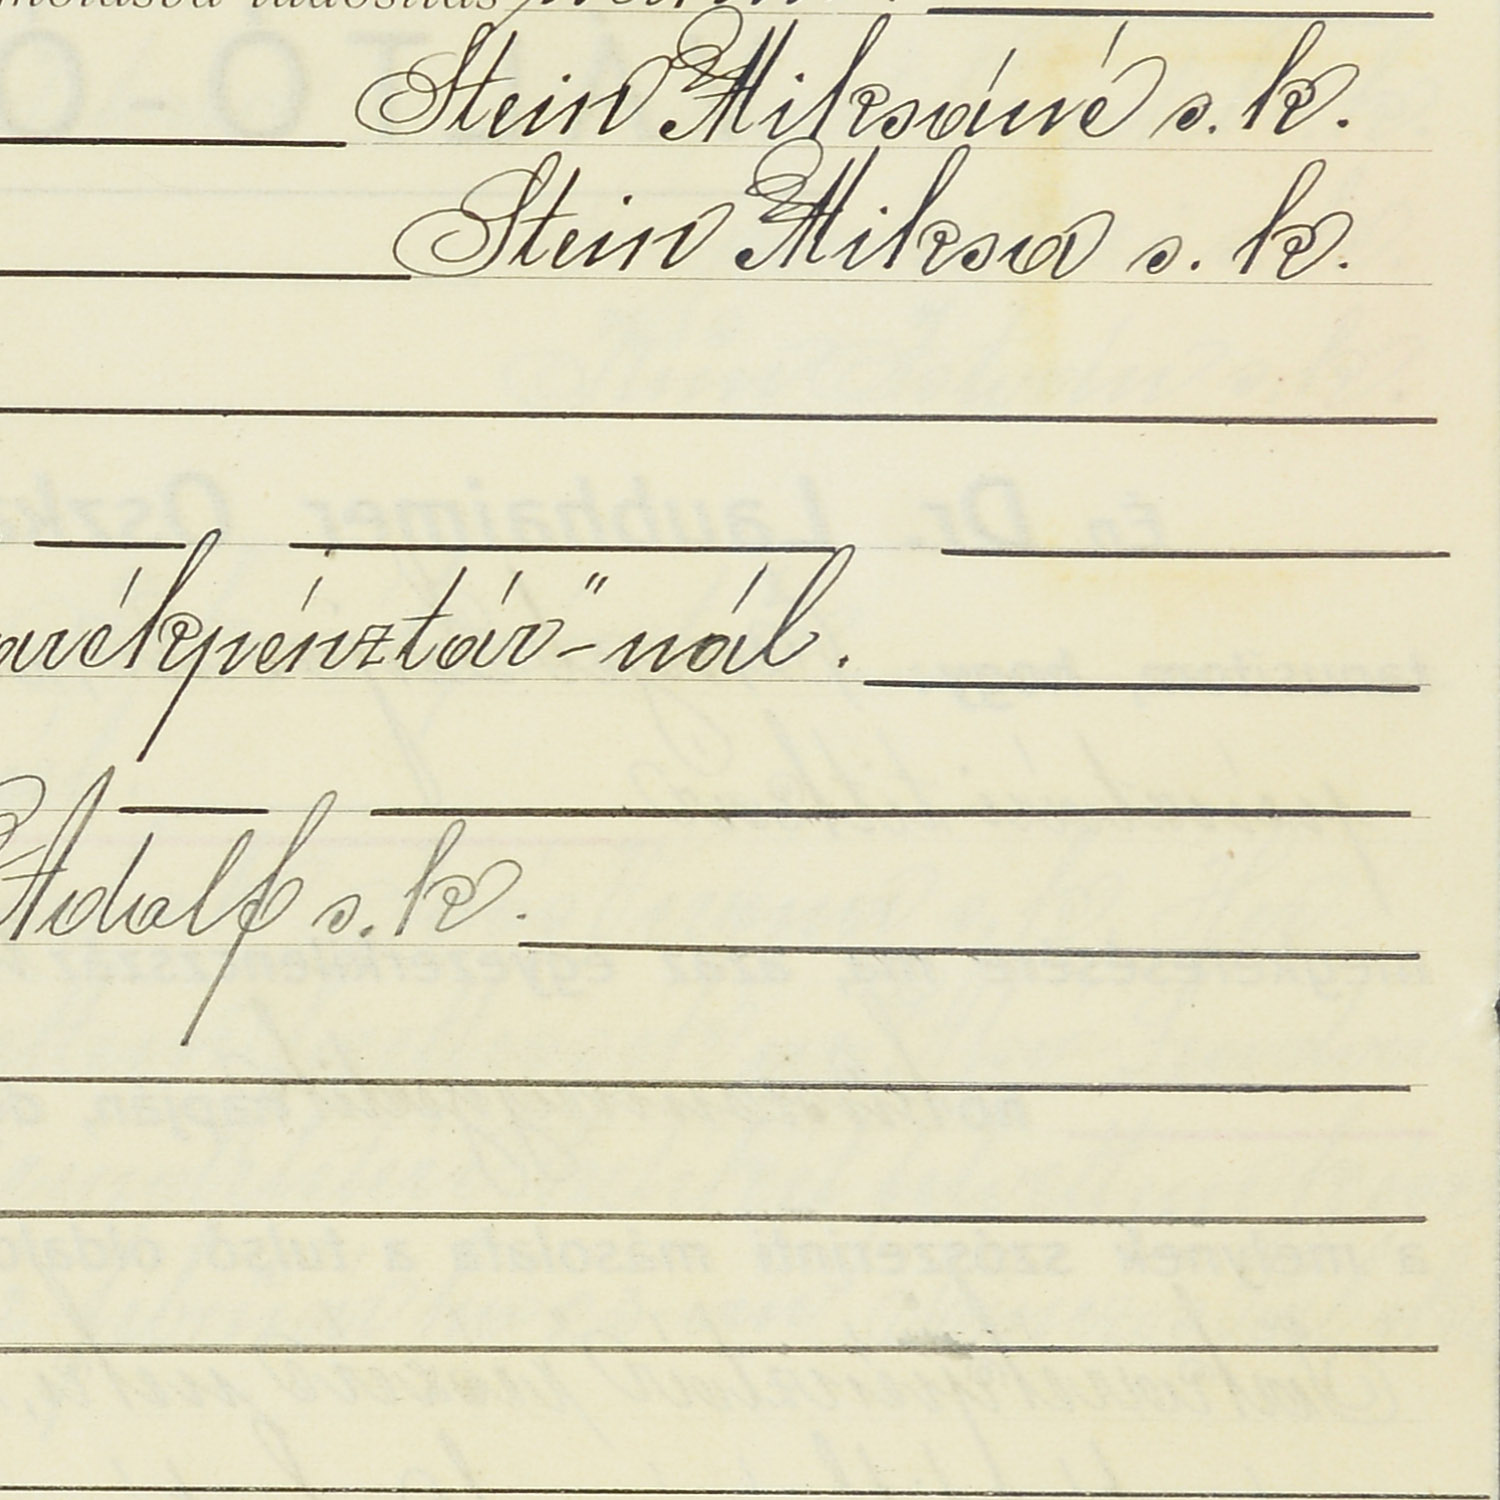 Stein Miksáné s. k.
Stein Miksa s. k.
arékpénztár"-nál.
Adolf s. k.